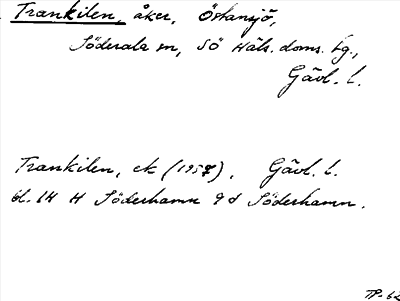 Trankilen, åker, Östansjö,
Söderala sn, SÖ Häls. doms. tg.,
Gävl. l.
Trankilen, ek (1957), Gävl. l.
bl. 14 H Söderhamn 9 d Söderhamn.
TP-62